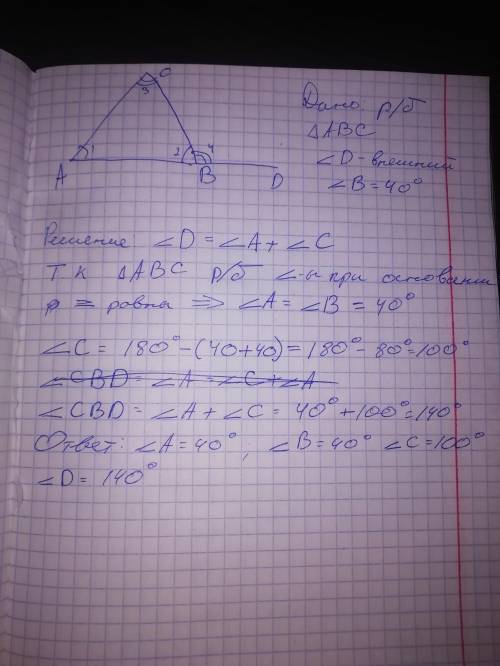 C
3
1
2
4
A
B
D
Дано: р/б
△ABC
∠D - внешний
∠B = 40°
Решение: ∠D = ∠A + ∠C
Т К △ABC р/б ∠-ы при основании
равны ⇒ ∠A = ∠B = 40°
∠C = 180° - (40+40) = 180° - 80° = 100°
∠CBD = ∠A = ∠C + ∠A
∠CBD = ∠A + ∠C = 40° + 100° = 140°
Ответ: ∠A = 40°, ∠B = 40° ∠C = 100°
∠D = 140°